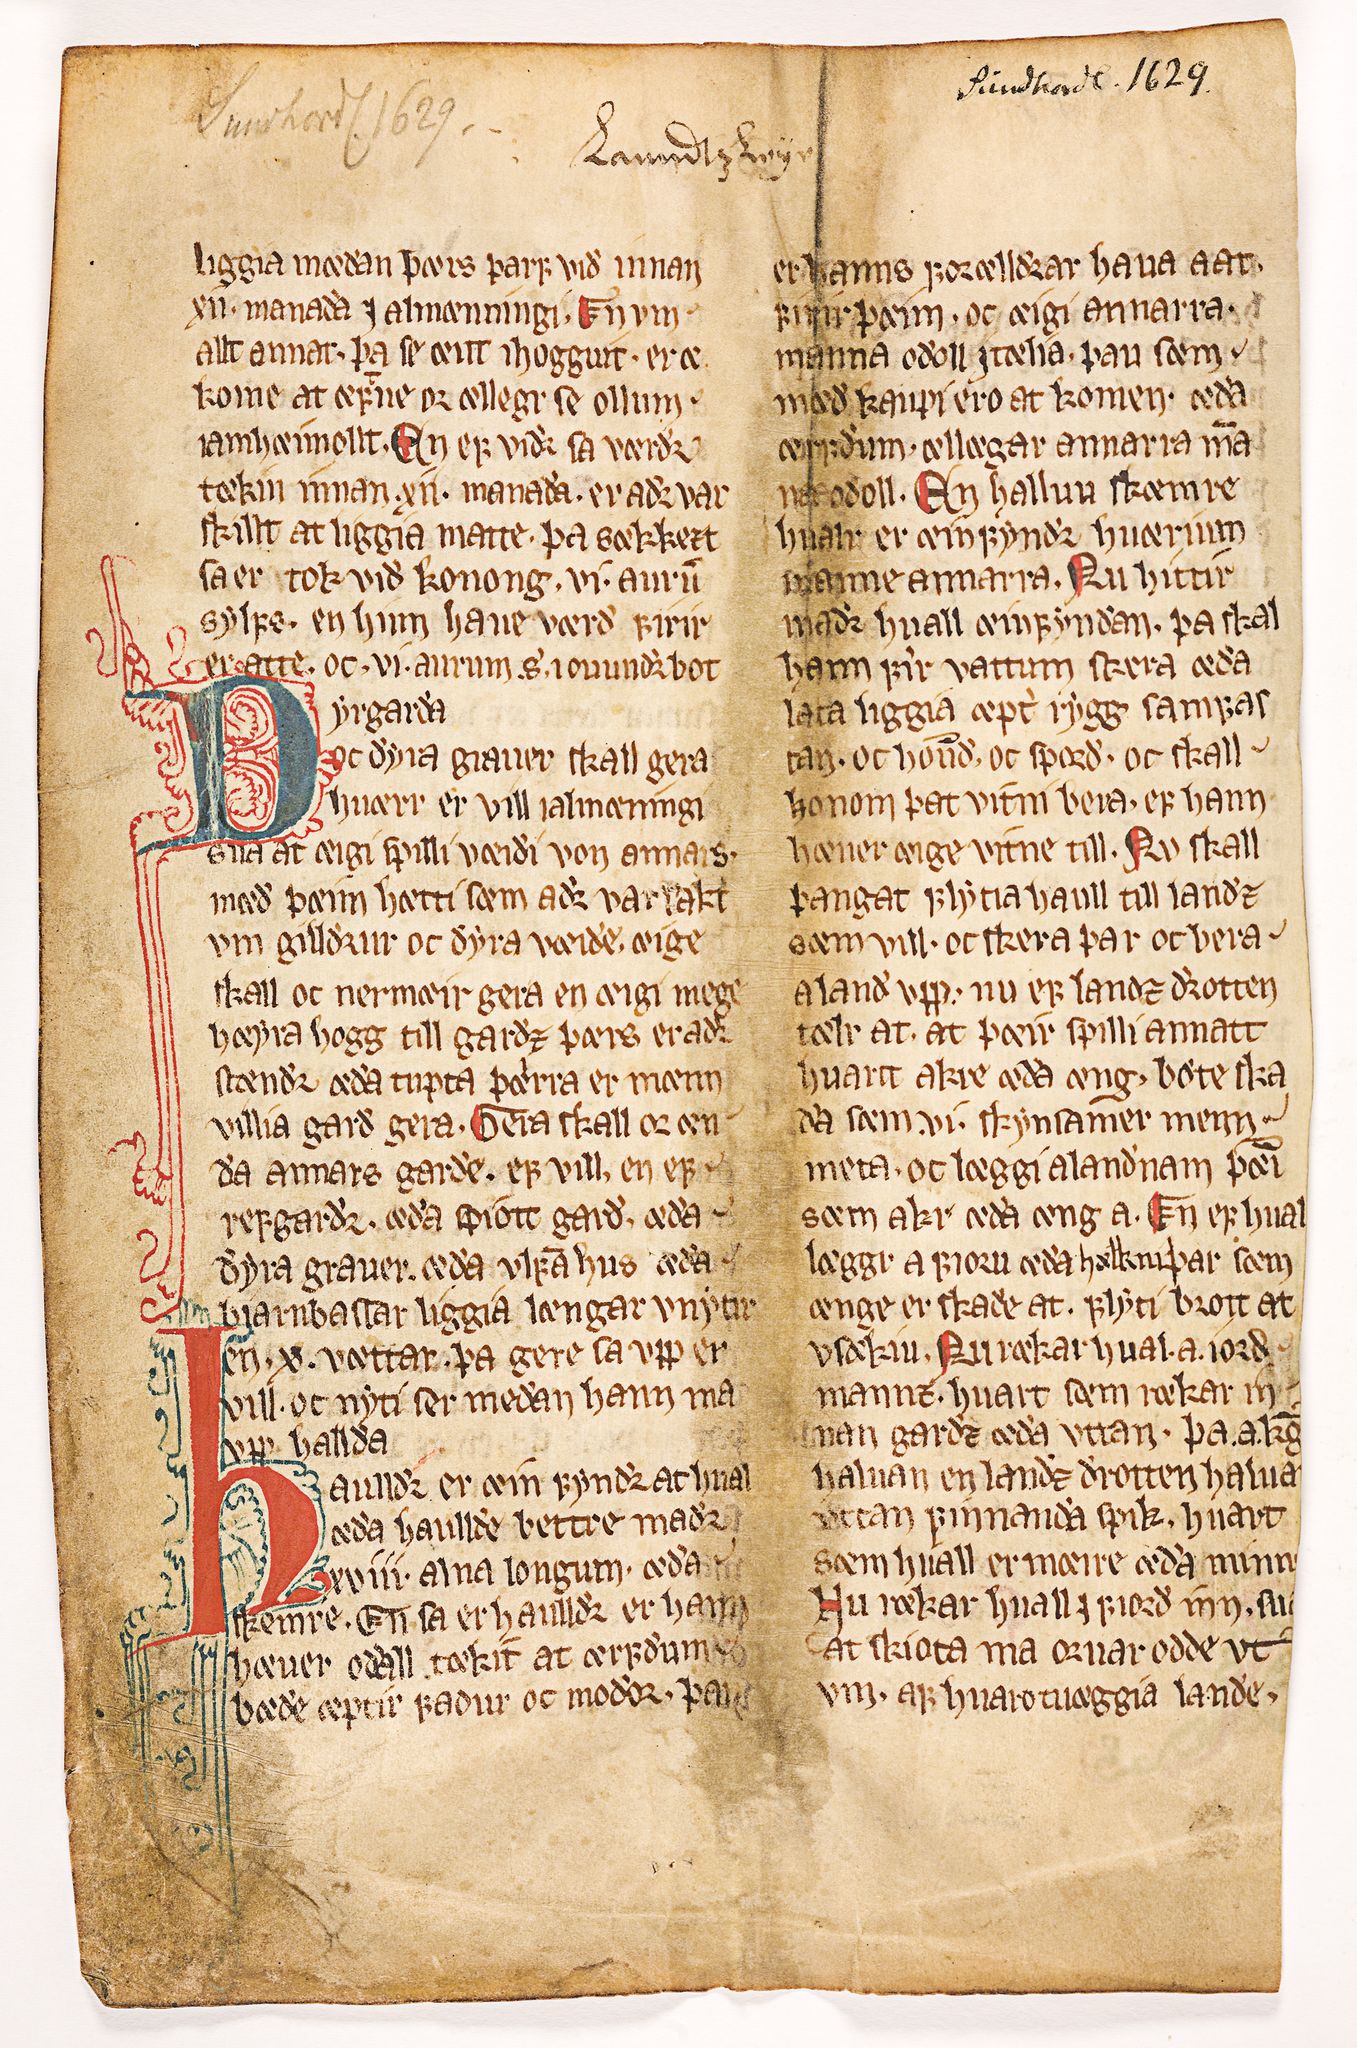 Sundhordl. 1629.
Sundhordl. 1629.
Laundtz Leye
liggia mædan þærs þarf við innan
xij. manaða j almænningi. En vm
allt annat. þa se æitt ihoggvit. er æ
kome at æfne or ællegr se ollum
iamhæimollt. En ef viðr sa værðr
tækin innan .xij. manaða. er aðr var
skillt at liggia matte. þa sækkezt
sa er tok við konong. vi. aurū
sylfs. en hinn have værð firir
er atte. oc. vi. aurum .s. i ovundr bot
Dyrgarða
oc dyra graver skall gera
huærr er vill i almæningi
sua at æigi spilli væiði von annars.
mæð þæim hætti sæm aðr var sakt
vm gilldrur oc dyra væide. æige
skall oc nermæir gera en æigi mege
hæyra hogg till garðz þærs er aðr
stændr æða tupta þærra er mænn
villia garð gera. Gera skall or æn
da annars garðe. ef vill, en ef
refgarðr. æða þiott garð. æða
dyra graver. æða vlfa hus æða
biarnbasſar liggia længar vnytir
en. x. vættar. þa gere sa vpp er
vill. oc nyti ser meðan hann ma
vpp hallda
Haulldr er æin fyndr at hual
æða haullde bettre maðr
xviii. alna longum. æða
skemre. En sa er haulldr er hann
hæver oðall tækit at ærfðum
bæðe æptir faður oc moðor. þau
er hanns forælldrar hava aat.
firir þæim. oc æigi annarra
manna oðoll jtælia. þau sæm
mæð kaupi ero at komen. æða
ærfðum. ællægar annarra m̄a
oðoll. En halluu skæmre
hualr er æinfyndr huærium
manne annarra. Nu hittir
maðr huall æinfyndan. þa skal
hann fir vattum skera æða
lata liggia æpt rygg samfas
tan. oc hofuð. oc sporð. oc skall
honom þat vitni bera. ef hann
hæver æige vitne till. Nv skall
þangat flytia huall till landz
sæm vill. oc skera þar oc bera
a land vpp. nu ef landz drotten
tælr at. at þæir spilli annatt
huart akre æða æng. bøte ska
ða sæm .vi. skynsamer menn
meta. oc læggi a landnam þæi
sæm akr æða æng a. En ef hual
læggr a fioru æða hælkni þar sæm
ænge er skaðe at. flyti brott at
vsækiu. Nu rækar hual. a. iorð
mannz. huart sæm rækar in
nan garðz æða vttan. þa .a. kg̅
haluan en landz drotten halua
vttan finnanda spik. huart
sæm huall er mæire æða minn
Nu rækar huall j fiorð inn. sua
at skiota ma orvar odde vt
vm. af huarotuæggia lande.